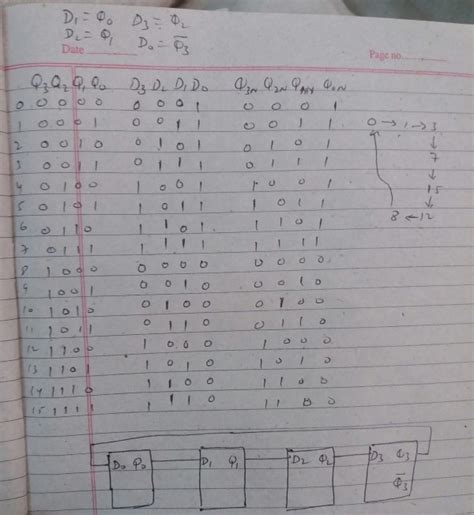 D₁ = Q₀ D₃ = Q₂
D₂ = Q₁ D₀ = Q̅₃
Date Page no.
Q₃ Q₂ Q₁ Q₀ D₃ D₂ D₁ D₀ Q₃N Q₂N Q₁N Q₀N
0 0 0 0 0 0 0 0 1 0 0 0 1
1 0 0 0 1 0 0 1 1 0 0 1 1 0 → 1 → 3
2 0 0 1 0 0 1 0 1 0 1 0 1 ↓
3 0 0 1 1 0 1 1 1 0 1 1 1 7
4 0 1 0 0 1 0 0 1 1 0 0 1 ↓
5 0 1 0 1 1 0 1 1 1 0 1 1 15
6 0 1 1 0 1 1 0 1 1 1 0 1 ↓
7 0 1 1 1 1 1 1 1 1 1 1 1 8 ← 12
8 1 0 0 0 0 0 0 0 0 0 0 0
9 1 0 0 1 0 0 1 0 0 0 1 0
10 1 0 1 0 0 1 0 0 0 1 0 0
11 1 0 1 1 0 1 1 0 0 1 1 0
12 1 1 0 0 1 0 0 0 1 0 0 0
13 1 1 0 1 1 0 1 0 1 0 1 0
14 1 1 1 0 1 1 0 0 1 1 0 0
15 1 1 1 1 1 1 1 0 1 1 0 0
D₀ Q₀ D₁ Q₁ D₂ Q₂ D₃ Q₃
Q̅₃